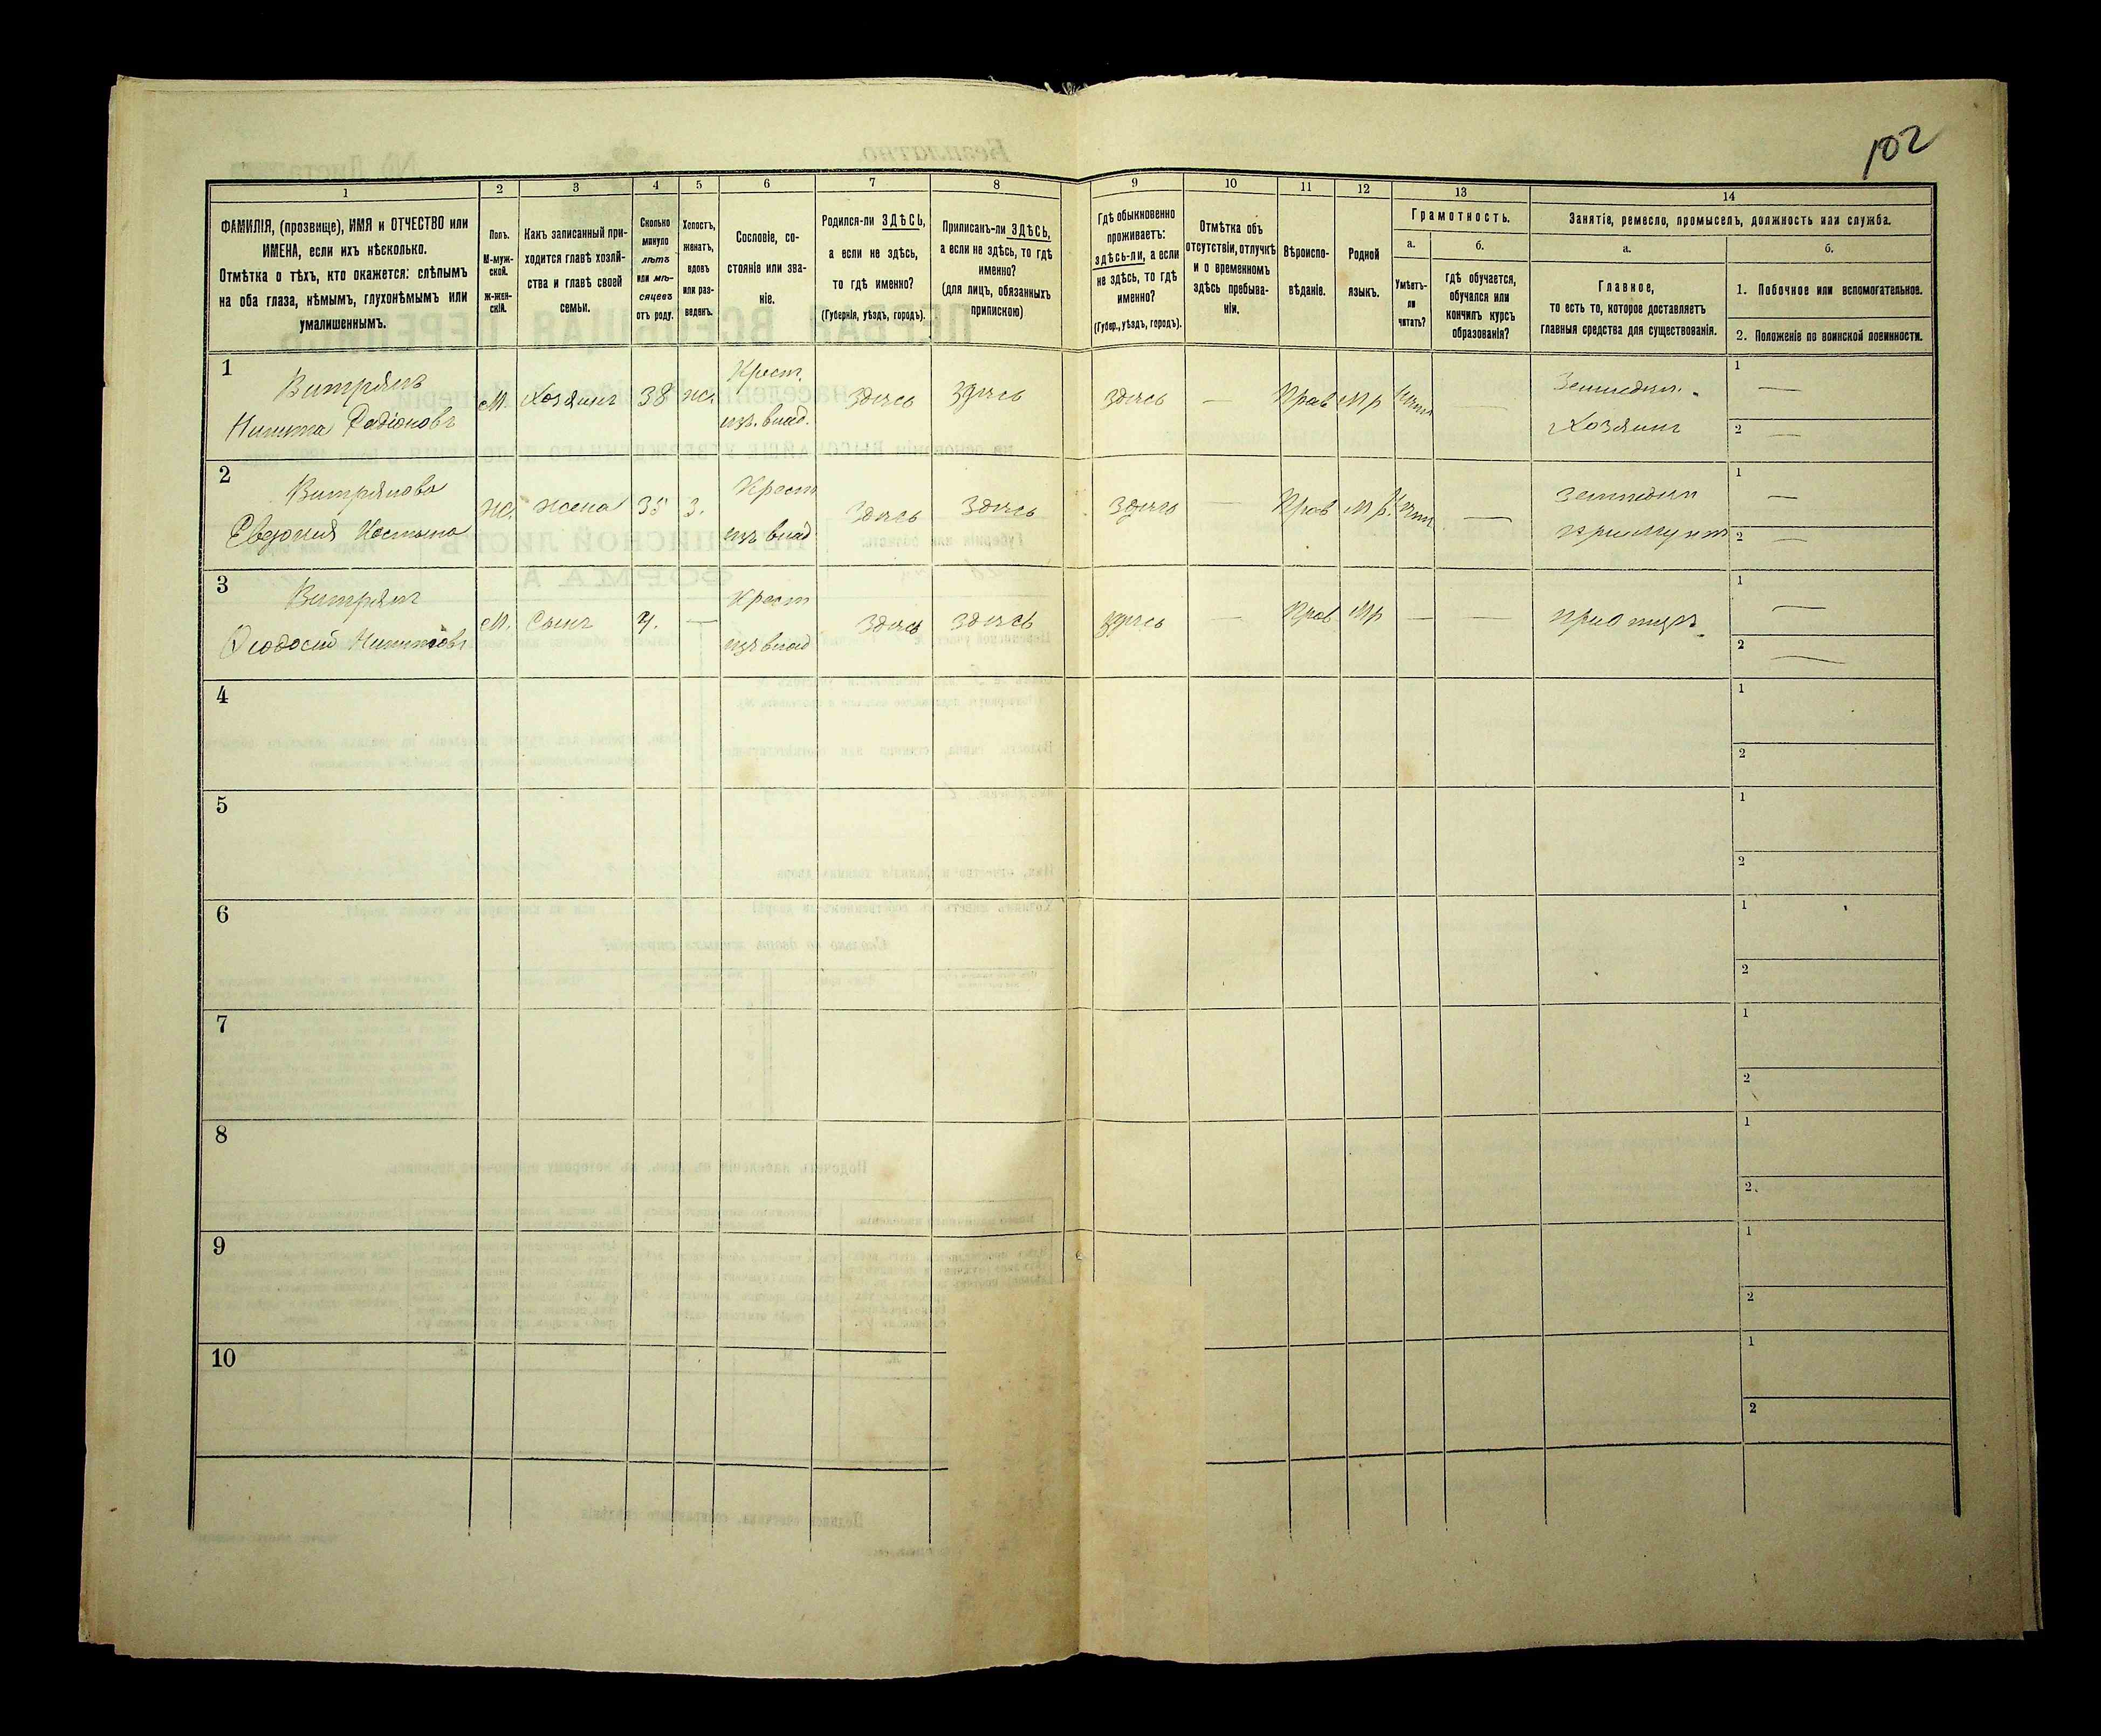 102
1
2
3
4
5
6
7
8
9
10
11
12
13
14
ФАМИЛІЯ, (прозвище), ИМЯ и ОТЧЕСТВО или
ИМЕНА, если ихъ нѣсколько.
Отмѣтка о тѣхъ, кто окажется: слѣпымъ
на оба глаза, нѣмымъ, глухонѣмымъ или
умалишеннымъ.
Полъ.
М-муж-
ской.
Ж-жен-
скій.
Какъ записанный при-
ходится главѣ хозяй-
ства и главѣ своей
семьи.
Сколько
минуло
лѣтъ
или мѣ-
сяцевъ
отъ роду.
Холостъ,
женатъ,
вдовъ
или раз-
веденъ.
Сословіе, со-
стояніе или зва-
ніе.
Родился-ли ЗДѢСЬ,
а если не здѣсь,
то гдѣ именно?
(Губернія, уѣздъ, городъ).
Приписанъ-ли ЗДѢСЬ,
а если не здѣсь, то гдѣ
именно?
(для лицъ, обязанныхъ
припискою)
Гдѣ обыкновенно
проживаетъ:
здѣсь-ли, а если
не здѣсь, то гдѣ
именно?
(Губер., уѣздъ, городъ).
Отмѣтка объ
отсутствіи, отлучкѣ
и о временномъ
здѣсь пребыва-
ніи.
Вѣроиспо-
вѣданіе.
Родной
языкъ.
Грамотность.
а.
б.
Умѣетъ-
ли
читать?
гдѣ обучается,
обучался или
кончилъ курсъ
образованія?
Занятіе, ремесло, промыселъ, должность или служба.
а.
б.
Главное,
то есть то, которое доставляетъ
главныя средства для существованія.
1. Побочное или вспомогательное.
2. Положеніе по воинской повинности.
1
Витрякъ
Никита Радіоновъ
М. Хозяинъ 38 ж.
Крест.
изъ влад.
здѣсь здѣсь здѣсь — Прав Мр —
Земледѣл.
Хозяинъ
1 —
2 —
2
Витрякова
Евдокія
Ж. Жена 35 З.
Крест
изъ влад
здѣсь здѣсь здѣсь — Прав Мр. —
Земледѣл
1 —
2 —
3
Витрякъ
Ѳеодосій Никитовъ
М. Сынъ —
Крест
изъ влад
здѣсь здѣсь здѣсь — Прав Мр — —
при отцѣ
1 —
2 —
4
1
2
5
1
2
6
1
2
7
1
2
8
1
2
9
1
2
10
1
2